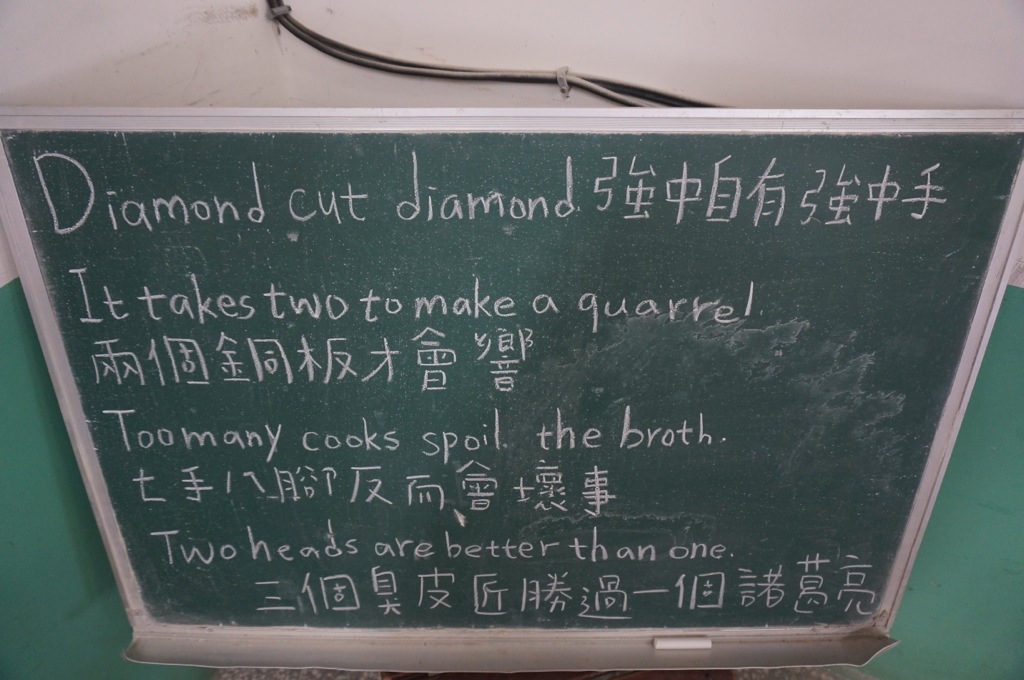 Diamond cut diamond 強中自有強中手
It takes two to make a quarrel.
兩個銅板才會響
Too many cooks spoil the broth.
七手八腳反而會壞事
Two heads are better than one.
三個臭皮匠勝過一個諸葛亮